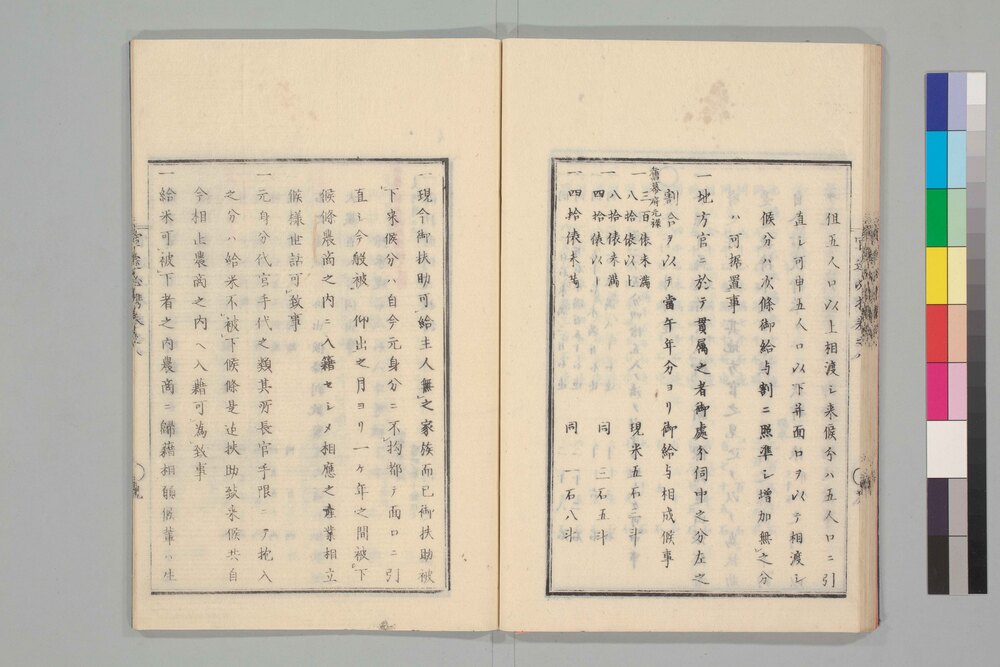 但五人口以上相渡シ来候分ハ五人口ニ引
直シ可申五人口以下并面口ヲ以テ相渡シ
候分ハ次條御給与割ニ照準シ増加無之分
ハ可据置事
一地方官ニ於テ貫属之者御處分伺中之分左之
割合ヲ以テ當午年分ヨリ御給与相成候事
舊幕府元祿
一三百俵未満
八拾俵以上 現米五石三斗
一八拾俵未満
四拾俵以上 同 三石五斗
一四拾俵未満 同 一石八斗
一現今御扶助可給主人無之家族而已御扶助被
下来候分ハ自今元身分ニ不拘都テ面口ニ引
直シ今般被 仰出之月ヨリ一ヶ年之間被下
候條農商之内ニ入籍セシメ相應之産業相立
候様世話可致事
一元身分代官手代之類其所長官手限ニテ抱入
之分ハ給米不被下候條是迄扶助致来候共自
今相止農商之内ヘ入籍可為致事
一給米可被下者之内農商ニ歸籍相願候輩ハ生